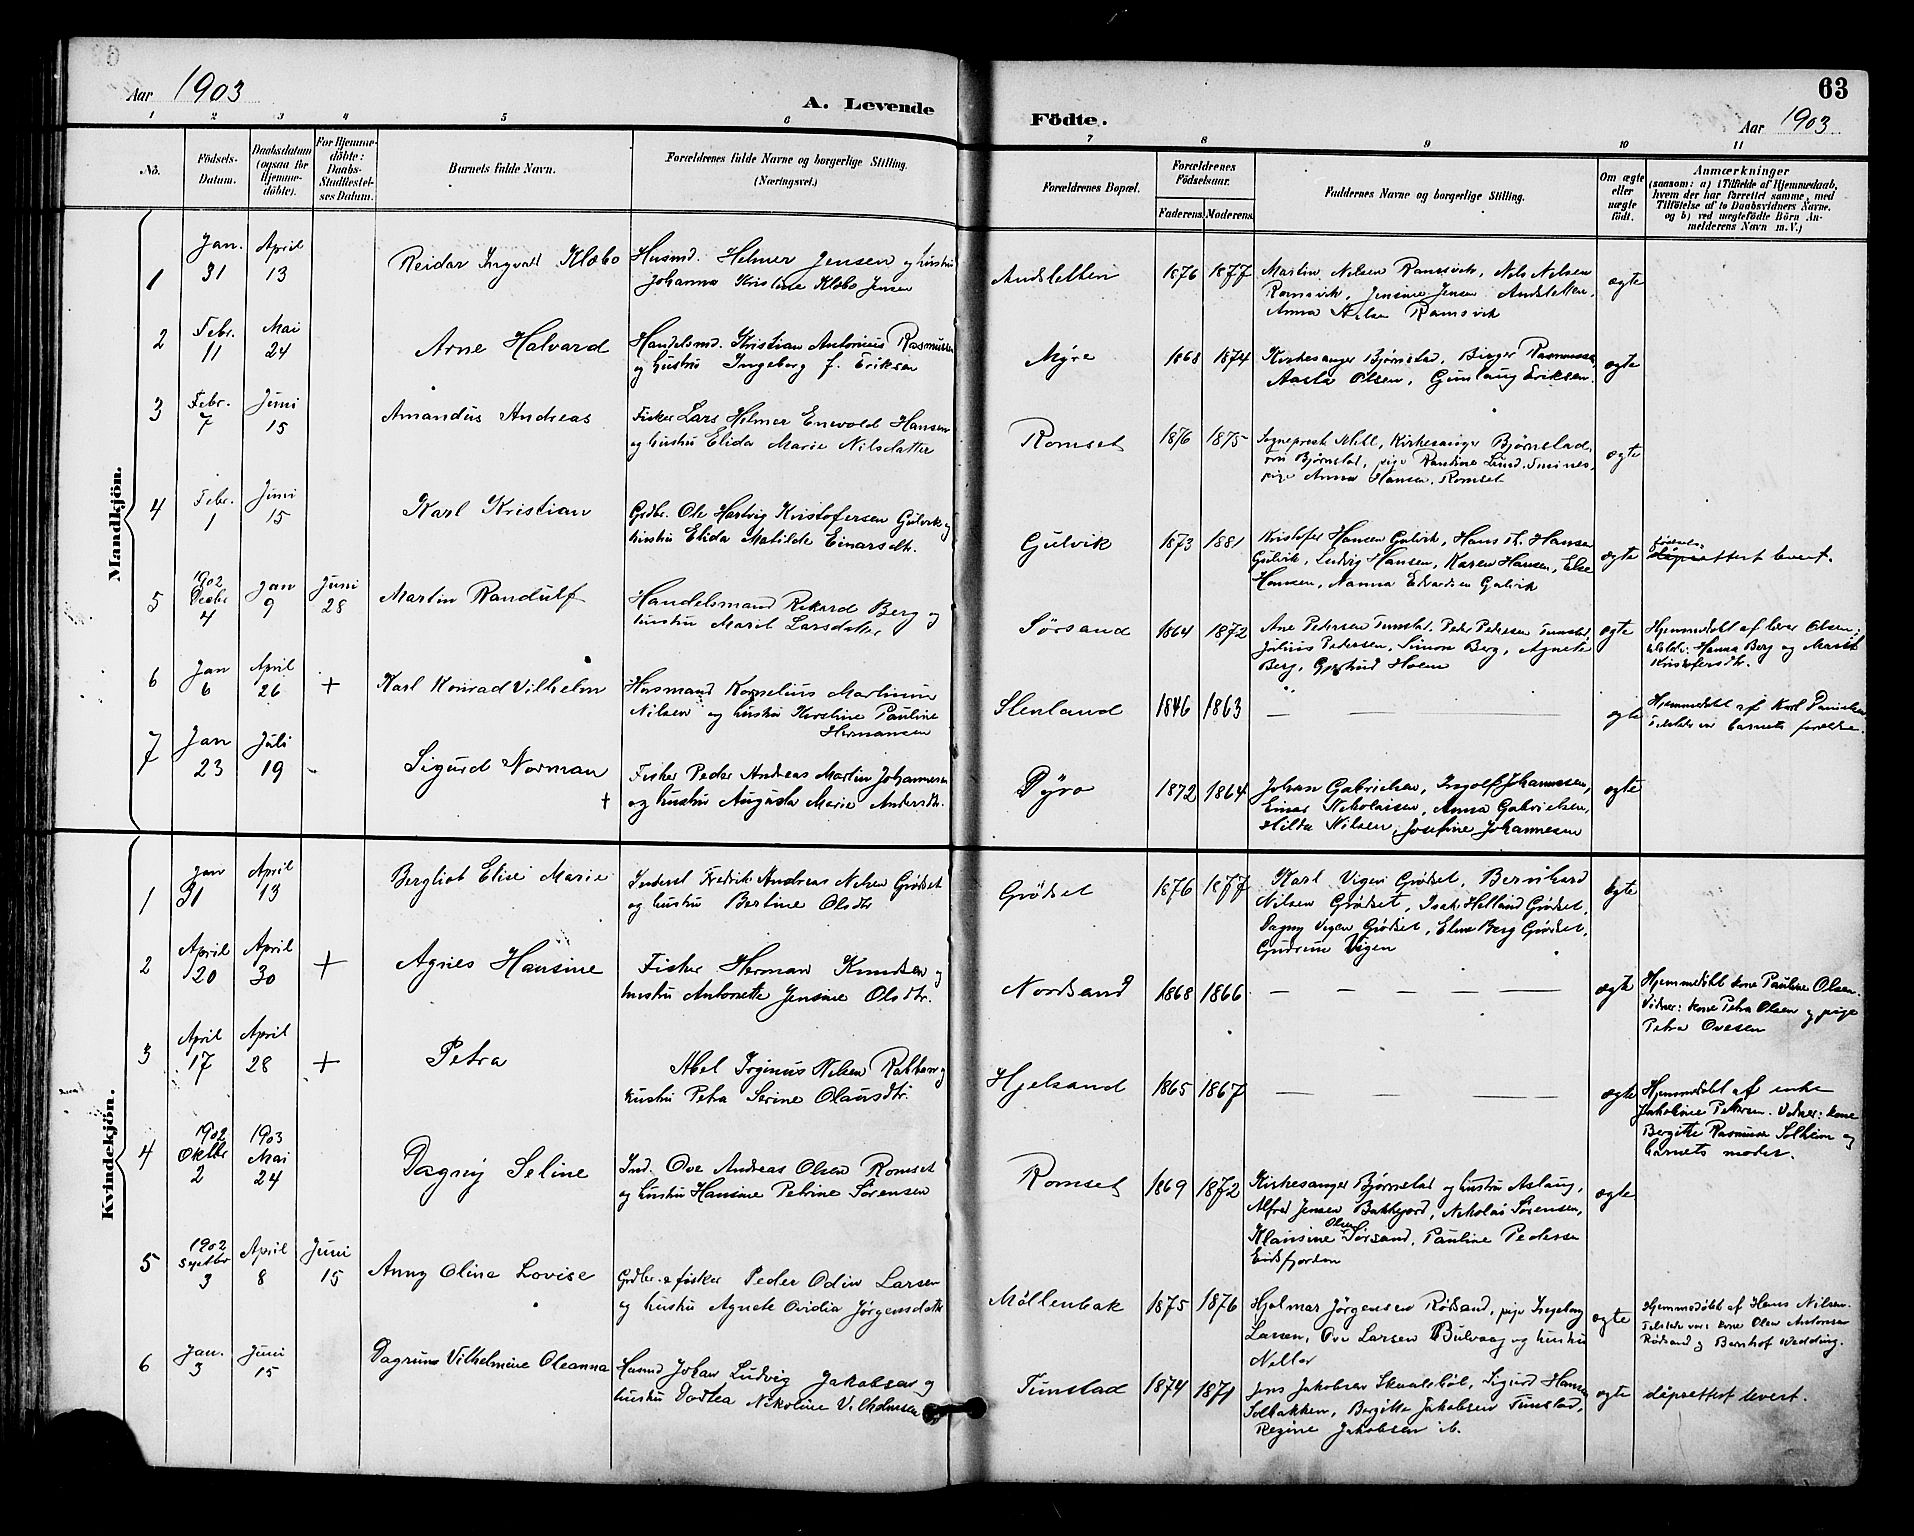 63
Aar 1903
A. Levende Födte.
Aar 1903
1 2 3 4 5 6 7 8 9 10 11
No.
Födsels-Datum.
Daabsdatum (ogsaa for Hjemmedöbte).
For Hjemmedöbte: Daabs-Stadfæstelses Datum.
Barnets fulde Navn.
Forældrenes fulde Navne og borgerlige Stilling.
(Næringsvei.)
Forældrenes Bopæl.
Forældrenes Födselsaar.
Faderens. Moderens.
Faddernes Navne og borgerlige Stilling.
Om ægte eller uægte födt.
Anmærkninger
(saasom: a) i Tilfælde af Hjemmedaab,
hvem der har forrettet samme, med
Tilföielse af to Daabsvidners Navne,
og b) ved uægtefödte Börn Anmelderens Navn m. V.)
Mandkjön.
1 Jan. 31 April 13 Reidar Ingvald Klæbo
Husmd. Helmer Jensen og hustru
Johanna Kristine Klæbo Jensen
Andsletten 1876 1877
Martin Nilsen Ramsvik, Nils Nilsen
Ramsvik, Jensine Jensen Andsletten,
Anna Nilsen Ramsvik
ægte
2 Febr. 11 Mai 24 Arne Halvard
Handelsmd. Kristian Antonius Rasmussen
og hustru Ingeborg f. Eriksen
Myre 1868 1874
Kirkesanger Bjørnstad, Birger Rasmussen,
Aasta Olsen, Gunlaug Eriksen.
ægte
3 Febr. 7 Juni 15 Amandus Andreas
Fisker Lars Helmer Enevold Hansen
og hustru Elida Marie Nilsdatter
Romset 1876 1875
Sogneprest Mill, Kirkesanger Bjørnstad,
fru Bjørnstad, pige Lund,
pige Anna Hansen, Romset
ægte
4 Febr. 1 Juni 15 Karl Kristian
Grdbr. Ole Hartvig Kristofersen Gulvik og
hustru Elida Matilde Einarsdtr.
Gulvik 1873 1881
Kristofer Hansen Gulvik, Hans Hansen
Gulvik, Ludvig Hansen, Karen Hansen, Else
Hansen, Nanna Edvardsen Gulvik
ægte
dåpsattest levert.
5 1902 Decbr 4 Jan 9 Juni 28 Martin Randulf
Handelsmand Rikard Berg og
hustru Marit Larsdatter
Sørsand 1864 1872
Ane Pedersen Tunstad, Peder Pedersen Tunstad,
Julius Pedersen, Simon Berg, Agnete
Berg, Gjertrud Holen
ægte
Hjemmedøbt af lærer Olsen;
Hanna Berg og Marit
Kristofersdtr.
6 Jan 6 April 26 + Karl Konrad Vilhelm
Husmand Kornelius Martinus
Nilsen og hustru Kirstine Pauline
Hermansen
Stenland 1846 1863
— — — —
ægte
Hjemmedøbt af Karl Danielsen
barnets forældre.
7 Jan 23 Juli 19 - Sigurd Norman +
Fisker Peder Andreas Martin Johannesen
og hustru Augusta Marie Andersdtr.
Dyrø 1872 1864
Johan Gabrielsen, Ingolf Johannessen,
Einar Nikolaisen, Anna Gabrielsen,
Hilda Nilsen, Josefine Johannesen
ægte
Kvindekjön.
1 Jan 31 April 13 Bergliot Elise Marie
Inderst Fredrik Andreas Nilsen Grødset
og hustru Bertine Olsdtr
Grödset 1876 1877
Karl Vigen Grødset, Bernhard
Nilsen Grødset, Isak Helland Grødset,
Dagny Vigen Grødset, Eline Berg Grødset,
Gudrun Vigen
ægte
2 April 20 April 30 + Agnes Hansine
Fisker Herman Knudsen og
hustru Antonette Jensine Olsdtr.
Nordsand 1868 1866
— — — — —
ægte
Hjemmedøbt kone Pauline Olsen.
Vidner: kone Petra Olsen og pige
Petra Ovesen
3 April 17 April 28 + Petra
Abel Irginus Nilsen og
hustru Petra Serine Olausdtr.
Hjelsand 1865 1867
— — — —
ægte
Hjemmedøbt af enke
Jakobine Pettersen. Vidner: kone
Bergitte Rasmussen Solheim og
barnets moder.
4 1902 Oktbr 2 1903 Mai 24 Dagny Seline
Ind. Ove Andreas Olsen Romset
og hustru Hansine Petrine Sørensen
Romset 1869 1872
Kirkesanger Bjørnstad og hustru Aslaug,
Alfred Jensen Bakkejord, Nikolai Sørensen,
Klausine Olsen Sørsand, Pauline Pedersen
Eidsfjorden
ægte
5 1902 Septbr 3 April 8 Juni 15 Anny Oline Lovise
Grdbr. & fisker Peder Odin Larsen
og hustru Agnete Ovidia Jørgensdatter
Möllenbak 1875 1876
Hjalmar Jørgensen Rødsand, pige Ingeborg
Larsen, Ove Larsen Bulvaag og hustru
ægte
Hjemmedøbt af Hans Nilsen.
kone Olea Antonsen
Rødsand og Bernhof Wedding.
6 Jan. 3 Juni 15 Dagrun Vilhelmine Oleanna
Husmd Johan Ludvig Jakobsen og
hustru Dortea Nikoline Vilhelmsen
Tunstad 1874 1871
Jens Jakobsen, Sigurd Hansen
Solbakken, Bergitte Jakobsen Tunstad,
Regine Jakobsen ib.
ægte
dåpsattest levert.